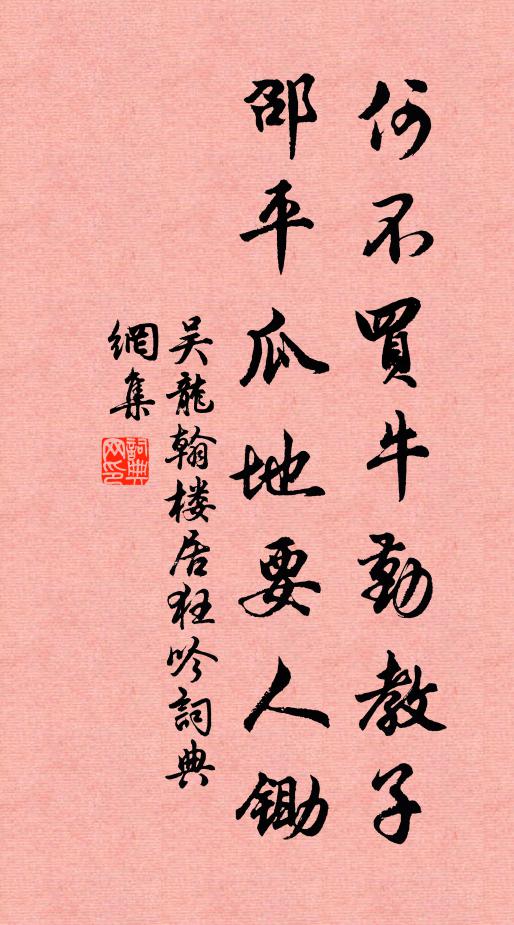 何不買牛勤教子
邵平瓜地要人鋤
吴龍翰楼居狂吟詞典
網集
詞典網印